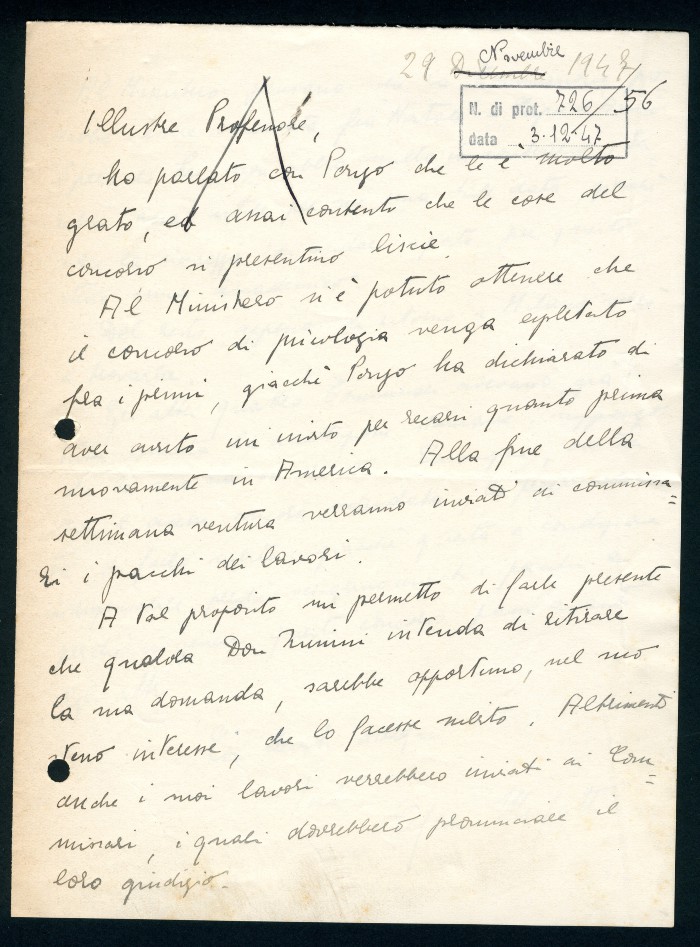 29 Dicembre Novembre 1947
N. di prot. 726/56
data 3-12-47
Illustre Professore,
ho parlato con Ponzo che le è molto
grato, ed assai contento che le cose del
concorso si presentino liscie.
Al Ministero si è potuto ottenere che
il concorso di psicologia venga espletato
fra i primi, giacchè Ponzo ha dichiarato di
aver avuto un invito per recarsi quanto prima
nuovamente in America. Alla fine della
settimana ventura verranno inviati ai commissa=
ri i pacchi dei lavori.
A tal proposito mi permetto di farle presente
che qualora Don Zunini intenda di ritirare
la sua domanda, sarebbe opportuno, nel suo
steno interesse, che lo facesse subito. Altrimenti
anche i suoi lavori verrebbero inviati ai Com=
missari, i quali dovrebbero pronunciare il
loro giudizio.